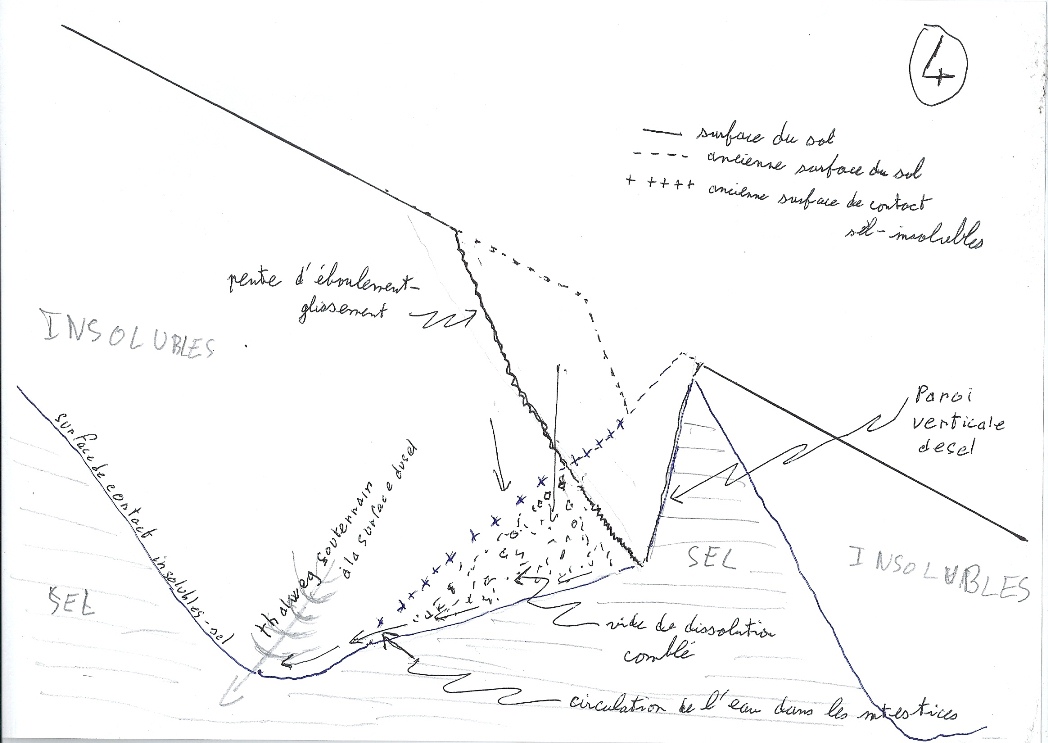 4
surface du sol
ancienne surface du sol
ancienne surface de contact
sel-insolubles
pente d'éboulement-
glissement
INSOLUBLES
Paroi
verticale
de sel
surface de contact insolubles-sel
thalweg souterrain
à la surface du sel
SEL
SEL
INSOLUBLES
vide de dissolution
comblé
circulation de l'eau dans les interstices